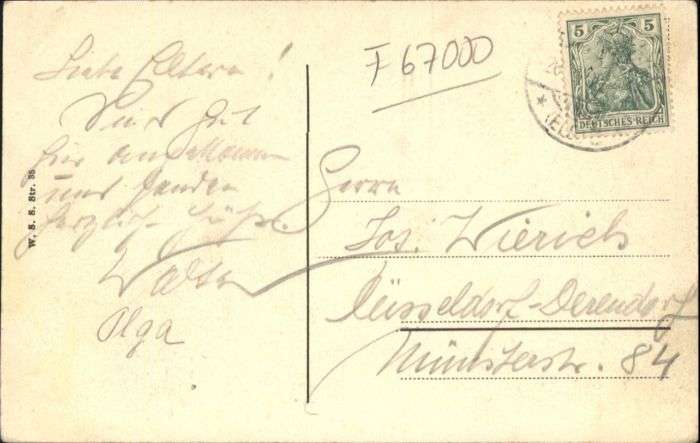 Liebe Eltern!
Sind gut
hier angekommen
und senden
herzlich Grüße.
Walter
Olga
W. S. S. Str. 35
F 67000
5 5
DEUTSCHES REICH
Herrn
Jos. Wierich
Düsseldorf-Derendorf
Münsterstr. 84